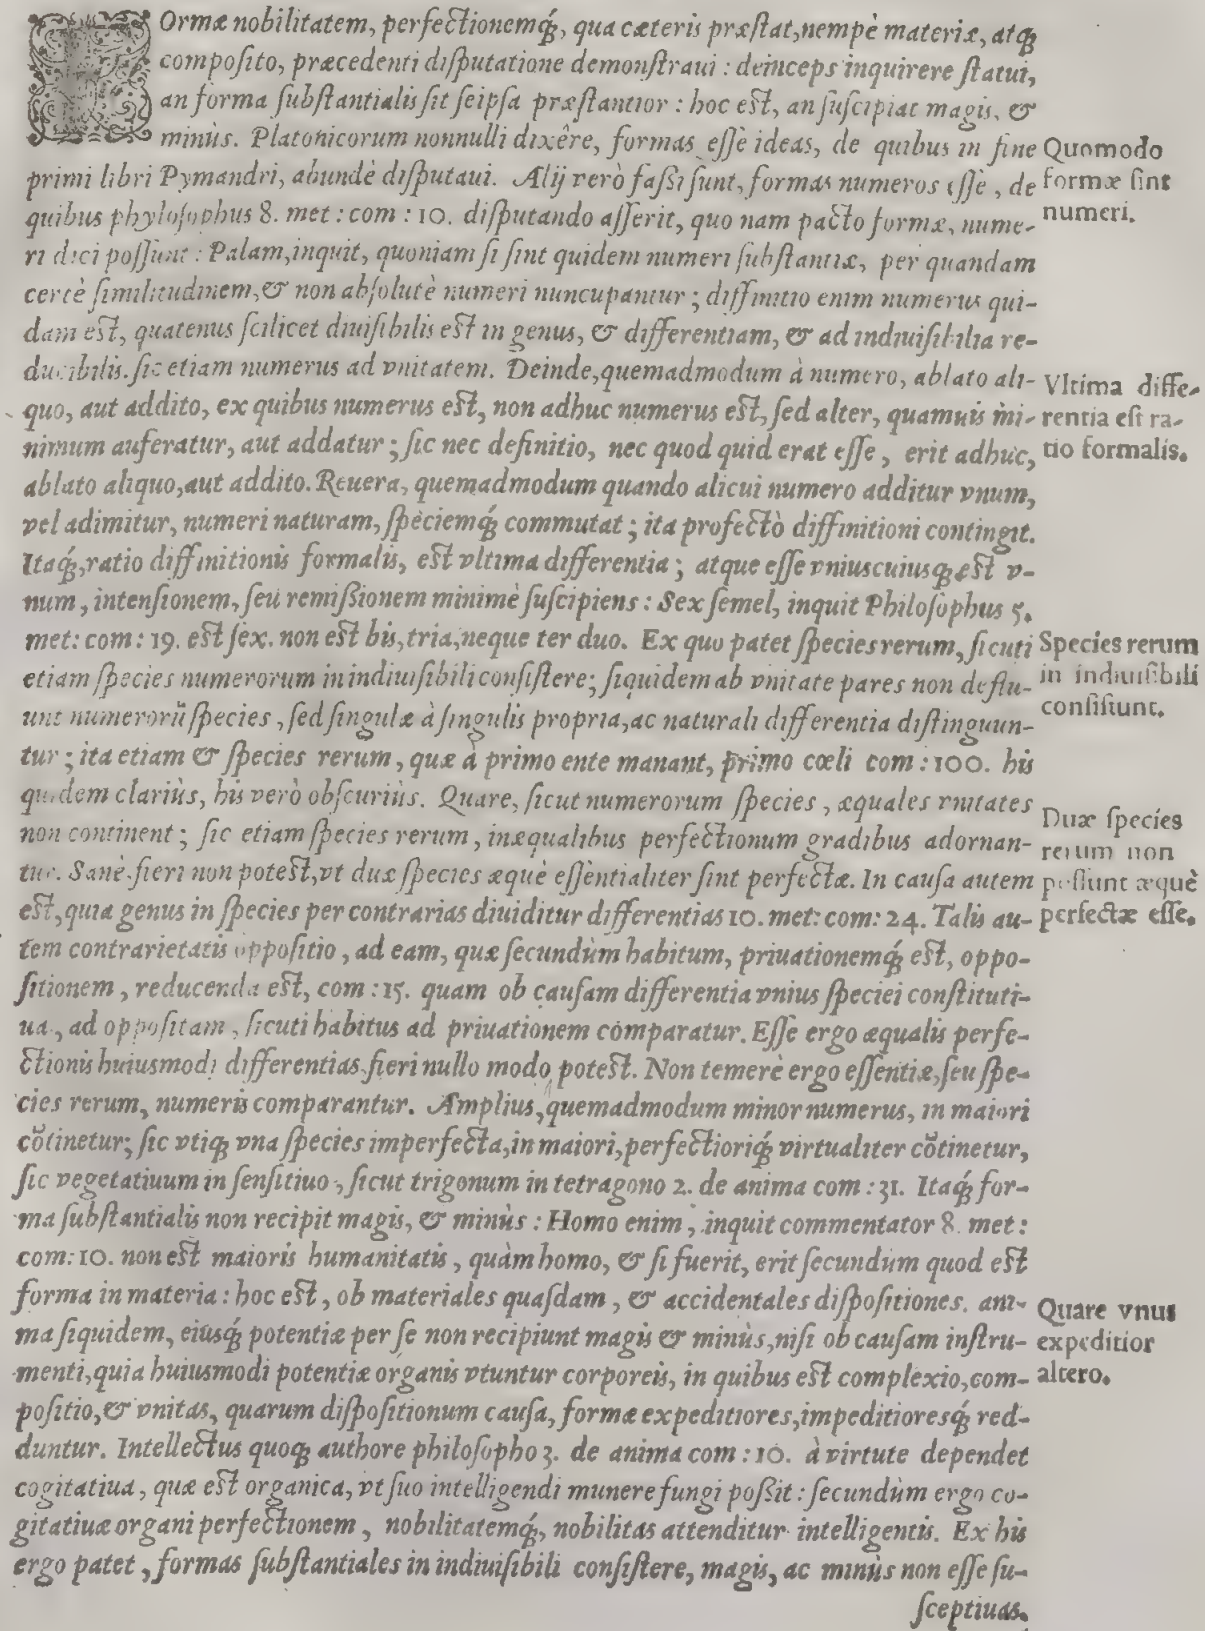 FOrmæ nobilitatem, perfectionemq́;, qua cæteris præſtat, nempè materiæ, atq;
compoſito, præcedenti diſputatione demonſtraui : deinceps inquirere ſtatui,
an forma ſubſtantialis ſit ſeipſa præſtantior : hoc eſt, an ſuſcipiat magis, &
minùs. Platonicorum nonnulli dixêre, formas eſſe ideas, de quibus in fine
primi libri Pymandri, abundè diſputaui. Alij verò faſſi ſunt, formas numeros eſſe, de
quibus phyloſophus 8. met : com : 10. diſputando aſſerit, quo nam pacto formæ, nume-
ri dici poſſunt : Palam, inquit, quoniam ſi ſint quidem numeri ſubſtantiæ, per quandam
certè ſimilitudinem, & non abſolutè numeri nuncupantur ; diffinitio enim numerus qui-
dam eſt, quatenus ſcilicet diuiſibilis eſt in genus, & differentiam, & ad indiuiſibilia re-
ducibilis. ſic etiam numerus ad vnitatem. Deinde, quemadmodum à numero, ablato ali-
quo, aut addito, ex quibus numerus eſt, non adhuc numerus eſt, ſed alter, quamuis mi-
nimum auferatur, aut addatur ; ſic nec definitio, nec quod quid erat eſſe, erit adhuc,
ablato aliquo, aut addito. Reuera, quemadmodum quando alicui numero additur vnum,
vel adimitur, numeri naturam, ſpeciemq́; commutat ; ita profectò diffinitioni contingit.
Itaq́;, ratio diffinitionis formalis, eſt vltima differentia ; atque eſſe vniuscuiusq; eſt v-
num, intenſionem, ſeu remiſſionem minimè ſuſcipiens : Sex ſemel, inquit Philoſophus 5.
met: com: 19. eſt ſex. non eſt bis, tria, neque ter duo. Ex quo patet ſpecies rerum, ſicuti
etiam ſpecies numerorum in indiuiſibili conſiſtere; ſiquidem ab vnitate pares non deflu-
unt numerorũ ſpecies, ſed ſingulæ à ſingulis propria, ac naturali differentia diſtinguun-
tur ; ita etiam & ſpecies rerum, quæ à primo ente manant, primo cœli com : 100. his
quidem clariùs, his verò obſcuriùs. Quare, ſicut numerorum ſpecies, æquales vnitates
non continent ; ſic etiam ſpecies rerum, inæqualibus perfectionum gradibus adornan-
tur. Sanè fieri non poteſt, vt duæ ſpecies æquè eſſentialiter ſint perfectæ. In cauſa autem
eſt, quia genus in ſpecies per contrarias diuiditur differentias 10. met: com: 24. Talis au-
tem contrarietatis oppoſitio, ad eam, quæ ſecundùm habitum, priuationemq́; eſt, oppo-
ſitionem, reducenda eſt, com : 15. quam ob cauſam differentia vnius ſpeciei conſtituti-
ua, ad oppoſitam, ſicuti habitus ad priuationem comparatur. Eſſe ergo æqualis perfe-
ctionis huiusmodi differentias fieri nullo modo poteſt. Non temerè ergo eſſentiæ, ſeu ſpe-
cies rerum, numeris comparantur. Amplius, quemadmodum minor numerus, in maiori
cõtinetur; ſic vtiq; vna ſpecies imperfecta, in maiori, perfectioriq́; virtualiter cõtinetur,
ſic vegetatiuum in ſenſitiuo, ſicut trigonum in tetragono 2. de anima com : 31. Itaq́; for-
ma ſubſtantialis non recipit magis, & minùs : Homo enim, inquit commentator 8. met :
com: 10. non eſt maioris humanitatis, quàm homo, & ſi fuerit, erit ſecundum quod eſt
forma in materia : hoc eſt, ob materiales quaſdam, & accidentales diſpoſitiones. ani-
ma ſiquidem, eiusq́; potentiæ per ſe non recipiunt magis & minùs, niſi ob cauſam inſtru-
menti, quia huiusmodi potentiæ organis vtuntur corporeis, in quibus eſt complexio, com-
poſitio, & vnitas, quarum diſpoſitionum cauſa, formæ expeditiores, impeditioresq́; red-
duntur. Intellectus quoq; authore philoſopho 3. de anima com : 10. à virtute dependet
cogitatiua, quæ eſt organica, vt ſuo intelligendi munere fungi poſſit : ſecundùm ergo co-
gitatiuæ organi perfectionem, nobilitatemq́;, nobilitas attenditur intelligentis. Ex his
ergo patet, formas ſubſtantiales in indiuiſibili conſiſtere, magis, ac minùs non eſſe ſu-
ſceptiuas.
Quomodo
formæ ſint
numeri.
Vltima diffe-
rentia eſt ra-
tio formalis.
Species rerum
in indiuiſibili
conſiſtunt.
Duæ ſpecies
rerum non
poſſunt æquè
perfectæ eſſe.
Quare vnus
expeditior
altero.